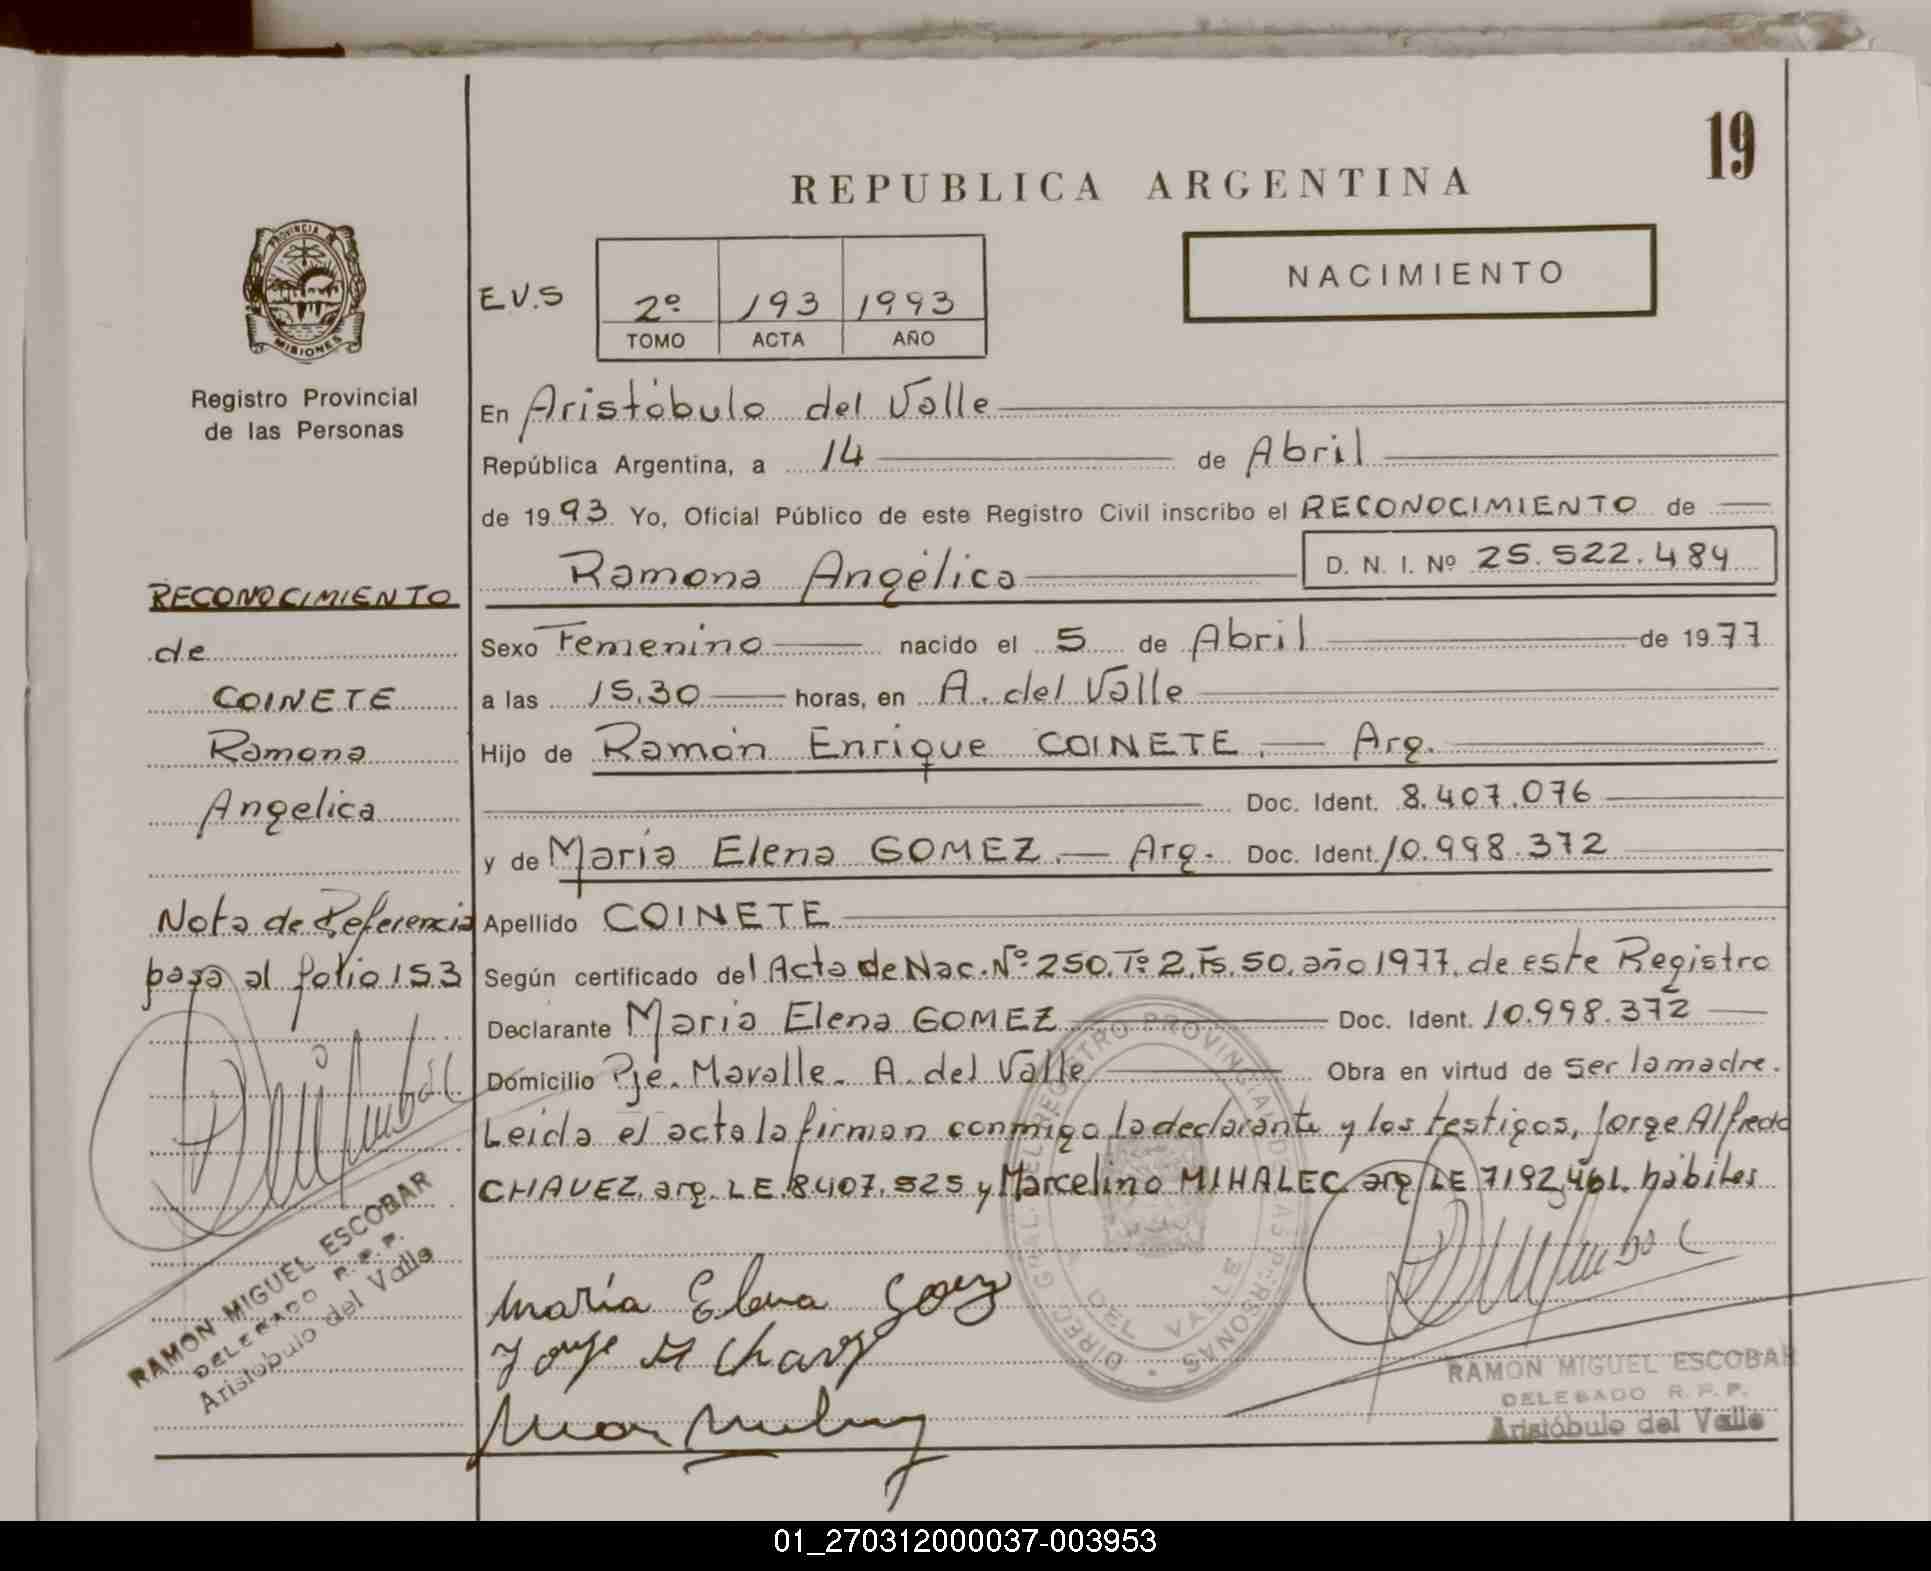 19
REPUBLICA ARGENTINA
PROVINCIA DE
MISIONES
Registro Provincial
de las Personas
E.V.S
2º 193 1993
TOMO ACTA AÑO
NACIMIENTO
En Aristóbulo del Valle
República Argentina, a 14 de Abril
de 1993 Yo, Oficial Público de este Registro Civil inscribo el RECONOCIMIENTO de
Ramona Angélica D. N. I. Nº 25.522.484
Sexo Femenino nacido el 5 de Abril de 1977
a las 15.30 horas, en A. del Valle
Hijo de Ramón Enrique COINETE. Arg.
Doc. Ident. 8.407.076
y de María Elena GOMEZ. Arg. Doc. Ident. 10.998.372
Apellido COINETE
Según certificado del Acta de Nac. Nº 250. Tº 2. Fs. 50. año 1977. de este Registro
Declarante María Elena GOMEZ Doc. Ident. 10.998.372
Domicilio Pje. Mavalle. A. del Valle Obra en virtud de ser la madre.
Leida el acta la firman conmigo la declarante y los testigos, Jorge Alfredo
CHAVEZ. arg. LE. 8407.525 y Marcelino MIHALEC arg LE 7192,461. hábiles
RECONOCIMIENTO
de
COINETE
Ramona
Angelica
Nota de Referencia
pasa al folio 153
RAMON MIGUEL ESCOBAR
DELEGADO R.P.P.
Aristóbulo del Valle
María Elena
Jorge A Chavez
DIREC. GRAL. DEL REGISTRO PROVINCIAL DE LAS PERSONAS
DEL VALLE
RAMON MIGUEL ESCOBAR
DELEGADO R.P.P.
Aristóbulo del Valle
01_270312000037-003953